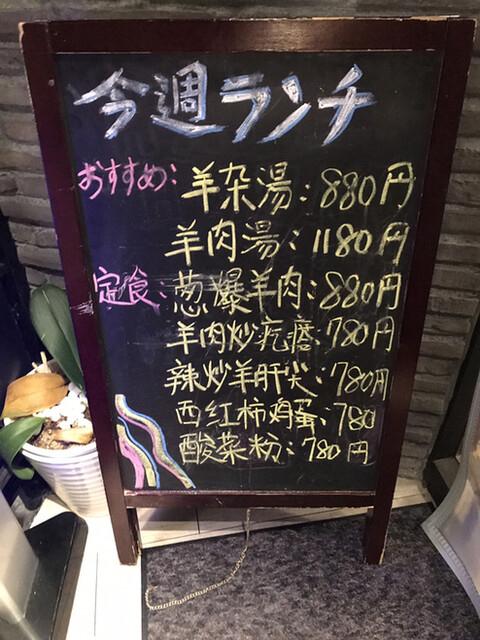 今週ランチ
おすすめ:羊杂湯:880円
羊肉湯:1180円
定食:葱爆羊肉:880円
羊肉炒疙瘩:780円
辣炒羊肝尖:780円
西红柿鸡蛋:780
酸菜粉:780円